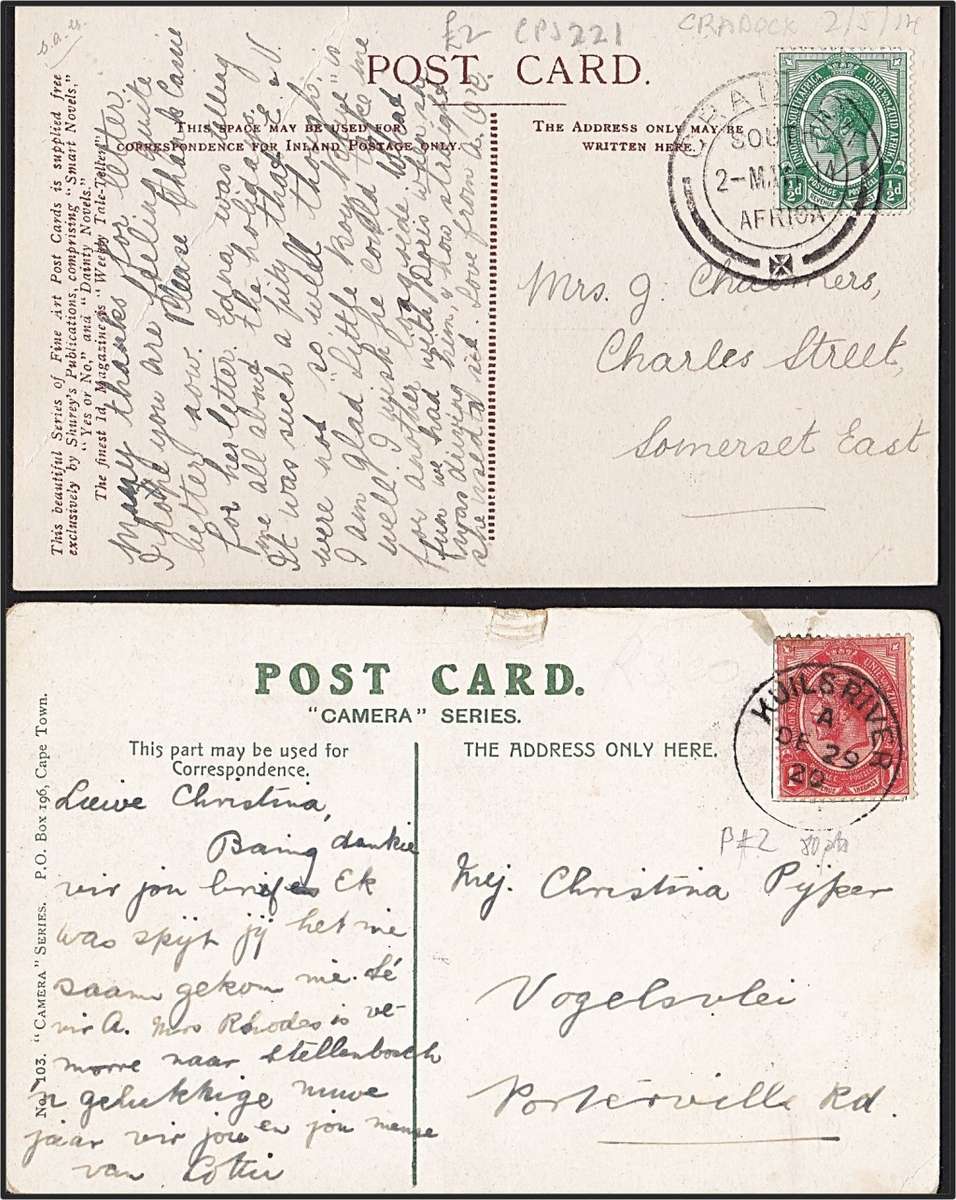 S.A. 25
£2 CPS221
CRADOCK 2/5/14
POST CARD.
THIS SPACE MAY BE USED FOR
CORRESPONDENCE FOR INLAND POSTAGE ONLY.
THE ADDRESS ONLY MAY BE
WRITTEN HERE.
This beautiful Series of Fine Art Post Cards is supplied free
exclusively by Shurey's Publications, comprising "Smart Novels,"
"Yes or No," and "Dainty Novels."
The finest 1d. Magazine is "Weekly Tale-Teller."
Many thanks for letter.
I hope you are feeling quite
better now. Please thank Carrie
for her letter. Edna was telling
me all about the holidays.
It was such a pity that E. & V.
were not so well though.
I am glad little Rory Boye is
well. I wish he could have
for another side. What
fun we had with Doris when she
was driving him, & how straight
she used to sit. Love from A.
SOUTH
2-MA
AFRICA
UNION OF SOUTH AFRICA
UNIE VAN ZUID AFRIKA
POSTAGE
REVENUE
½d ½d
Mrs. J. Chalmers,
Charles Street,
Somerset East
POST CARD.
"CAMERA" SERIES.
This part may be used for
Correspondence.
THE ADDRESS ONLY HERE.
No. 103. "CAMERA" SERIES. P.O. Box 196, Cape Town.
Liewe Christina,
Baing dankie
vir jou brief. Ek
was spijt jij het nie
saam gekom nie. Sê
vir A. Mrs Rhodes is ve-
morre naar Stellenbosch
'n gelukkige nuwe
jaar vir jou en jou mense
van Lottie
KUILS RIVER
A
DE 29
20
P#2
Mej. Christina Pyper
Vogelsvlei
Porterville Rd.